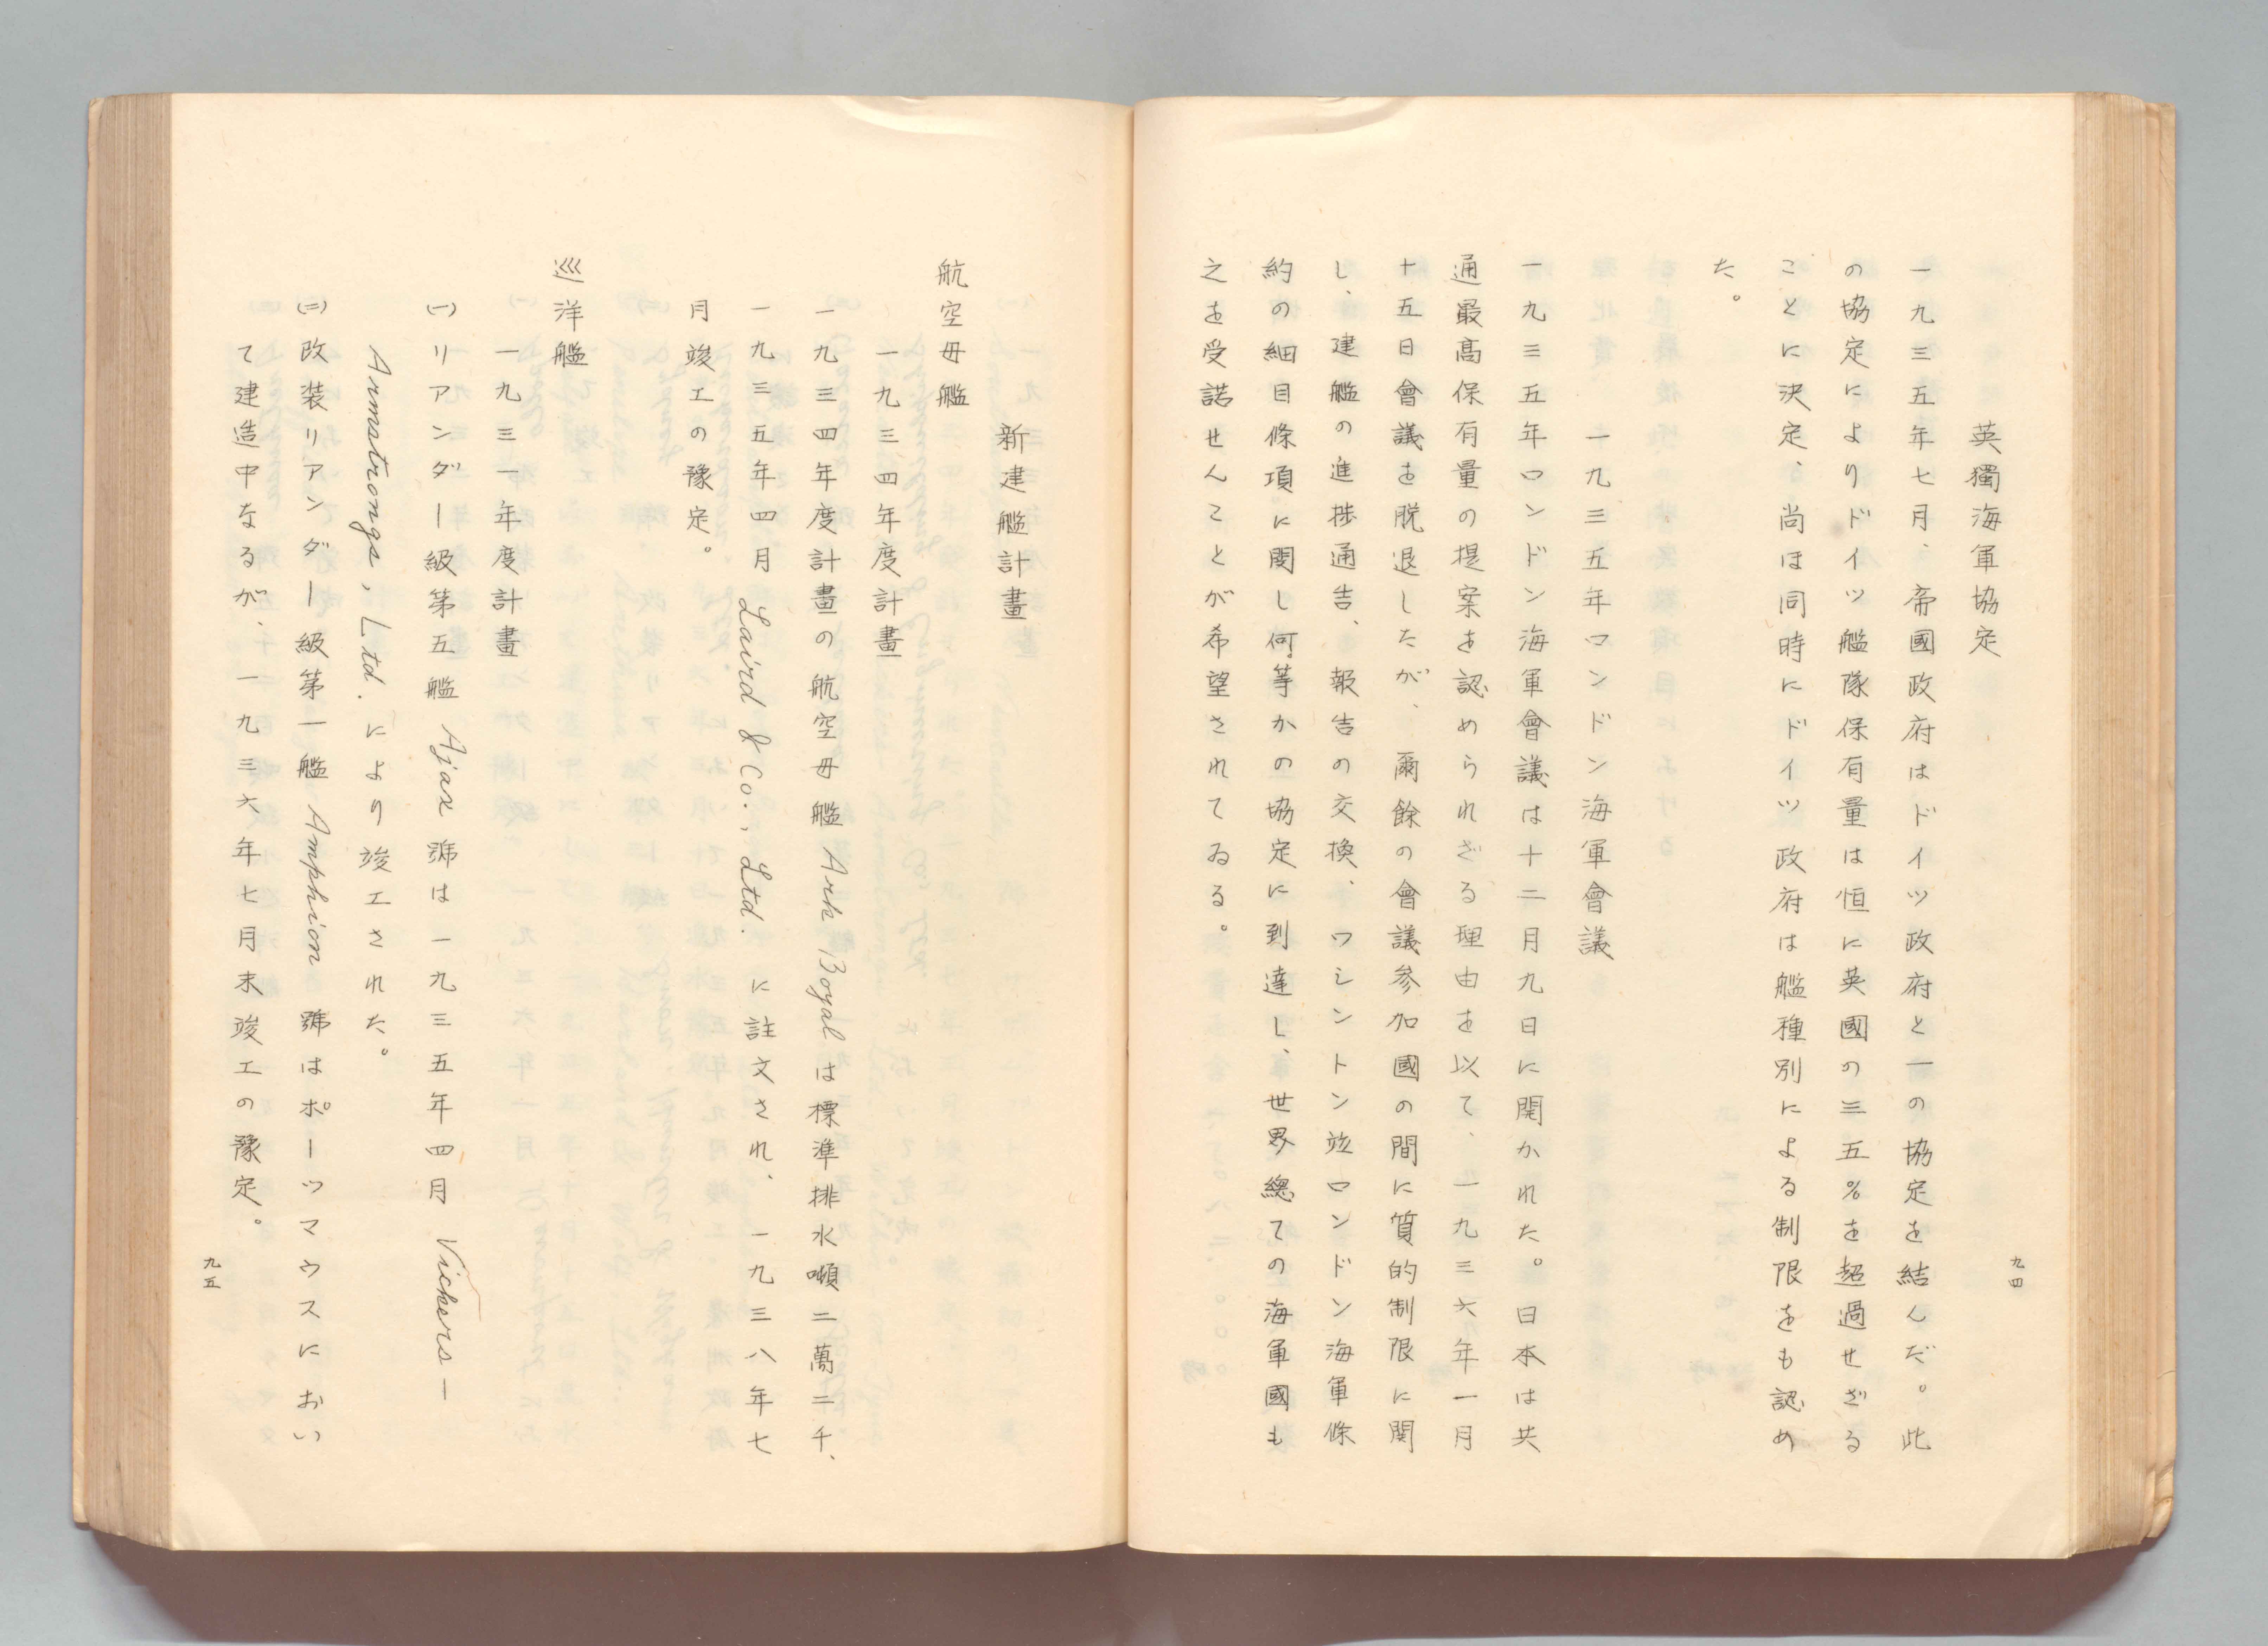 九四
英獨海軍協定
一九三五年七月、帝國政府はドイツ政府と一の協定を結んだ。此
の協定によりドイツ艦隊保有量は恒に英國の三五％を超過せざる
ことに決定、尚ほ同時にドイツ政府は艦種別による制限をも認め
た。
一九三五年ロンドン海軍會議
一九三五年ロンドン海軍會議は十二月九日に開かれた。日本は共
通最高保有量の提案を認められざる理由を以て、一九三六年一月
十五日會議を脱退したが、爾餘の會議参加國の間に質的制限に関
し、建艦の進捗通告、報告の交換、ワシントン竝ロンドン海軍條
約の細目條項に関し何等かの協定に到達し、世界總ての海軍國も
之を受諾せんことが希望されてゐる。
新建艦計畫
航空母艦
一九三四年度計畫
一九三四年度計畫の航空母艦 Ark Royal は標準排水噸二萬二千、
一九三五年四月 Laird & Co., Ltd. に註文され、一九三八年七
月竣工の豫定。
巡洋艦
一九三一年度計畫
㈠リアンダー級第五艦 Ajax 號は一九三五年四月 Vickers—
Armstrongs, Ltd. により竣工された。
㈡改装リアンダー級第一艦 Amphion 號はポーツマウスにおい
て建造中なるが、一九三六年七月末竣工の豫定。
九五